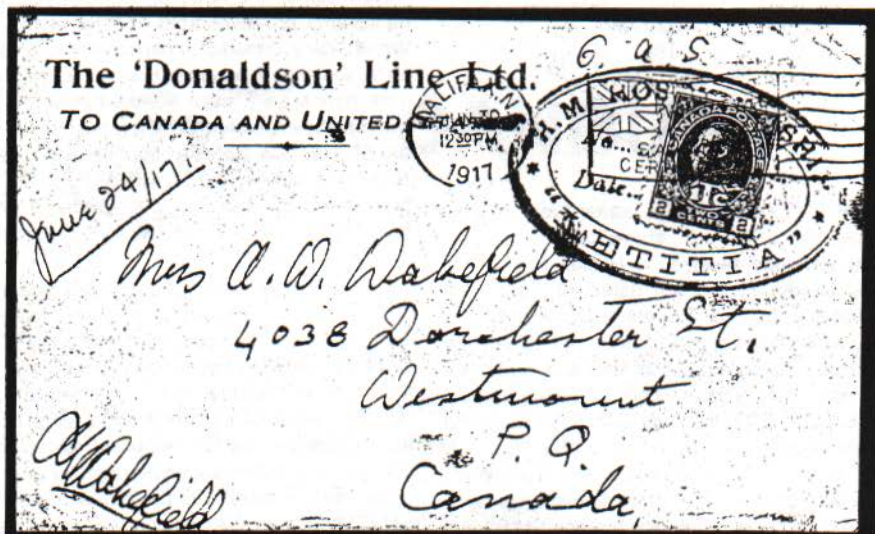 O. a. S
The 'Donaldson' Line Ltd.
TO CANADA AND UNITED
HALIFAX, N
30
12 30 PM
1917
H.M. HOS SHIP
No...
CER
Date...
"LETITIA"
CANADA POSTAGE
2 CENTS 2
June 24/17.
Mrs A. W. Wakefield
4038 Dorchester St.
Westmount
P. Q.
Canada.
AWakefield